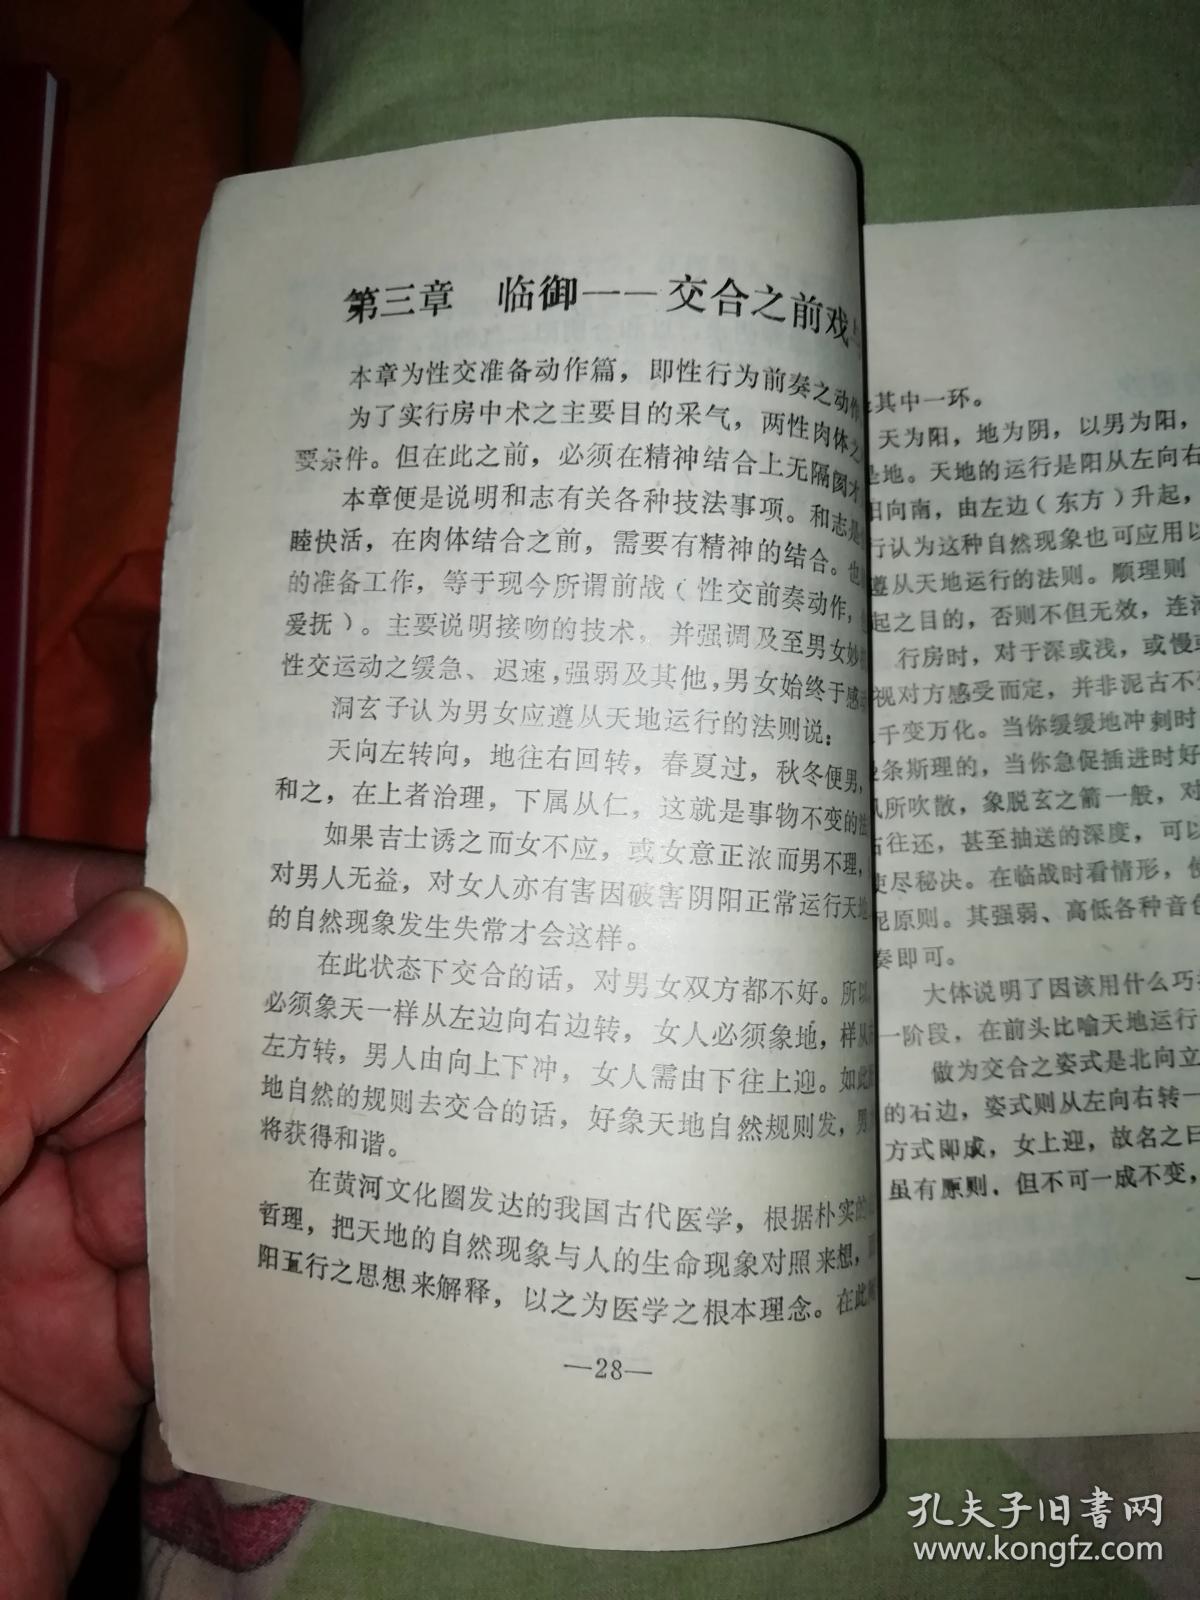 第三章　临御——交合之前戏
本章为性交准备动作篇，即性行为前奏之动作
为了实行房中术之主要目的采气，两性肉体之
要条件。但在此之前，必须在精神结合上无隔阂才
本章便是说明和志有关各种技法事项。和志是
睦快活，在肉体结合之前，需要有精神的结合。也
的准备工作，等于现今所谓前战（性交前奏动作，
爱抚）。主要说明接吻的技术，并强调及至男女妙
性交运动之缓急、迟速，强弱及其他，男女始终于感
洞玄子认为男女应遵从天地运行的法则说：
天向左转向，地往右回转，春夏过，秋冬便男，
和之，在上者治理，下属从仁，这就是事物不变的法
如果吉士诱之而女不应，或女意正浓而男不理，
对男人无益，对女人亦有害因破害阴阳正常运行天地
的自然现象发生失常才会这样。
在此状态下交合的话，对男女双方都不好。所以
必须象天一样从左边向右边转，女人必须象地，样从
左方转，男人由向上下冲，女人需由下往上迎。如此
地自然的规则去交合的话，好象天地自然规则发，男
将获得和谐。
在黄河文化圈发达的我国古代医学，根据朴实的
哲理，把天地的自然现象与人的生命现象对照来想，
阳五行之思想来解释，以之为医学之根本理念。在此
—28—
其中一环。
天为阳，地为阴，以男为阳，
是地。天地的运行是阳从左向右
日向南，由左边（东方）升起，
行认为这种自然现象也可应用以
遵从天地运行的法则。顺理则
起之目的，否则不但无效，连
行房时，对于深或浅，或慢或
视对方感受而定，并非泥古不
千变万化。当你缓缓地冲刺时
条斯理的，当你急促插进时好
风所吹散，象脱玄之箭一般，对
右往还，甚至抽送的深度，可以
使尽秘决。在临战时看情形，使
泥原则。其强弱、高低各种音色
奏即可。
大体说明了因该用什么巧
一阶段，在前头比喻天地运行
做为交合之姿式是北向立
的石边，姿式则从左向右转一
方式即成，女上迎，故名之曰
虽有原则，但不可一成不变，
孔夫子旧书网
www.kongfz.com